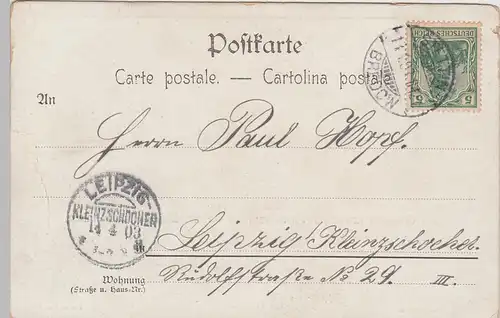 Postkarte
Carte postale. — Cartolina postale
DEUTSCHES REICH
5 5
An
Herrn Paul Hopf.
LEIPZIG-
KLEINZSCHOCHER
14 4 03
in Leipzig/Kleinzschocher.
Wohnung
(Straße u. Haus-Nr.)
Rudolfstraße No 29. III.